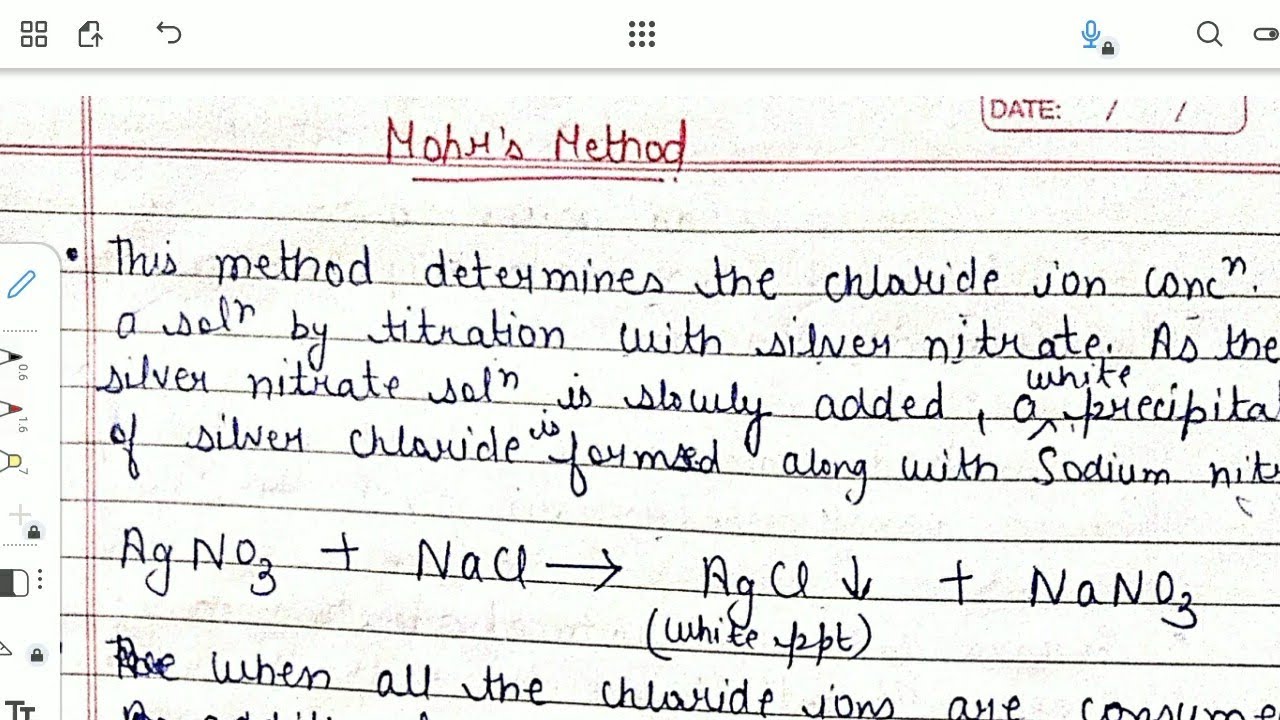 DATE: / /
Mohr's Method
• This method determines the chloride ion concⁿ.
a solⁿ by titration with silver nitrate. As the
silver nitrate solⁿ is slowly added, a white precipita
of silver chloride is formed along with Sodium nit
AgNO₃ + NaCl → AgCl ↓ + NaNO₃
(white ppt)
when all the chloride ions are consume
0.6
1.6
7
TT